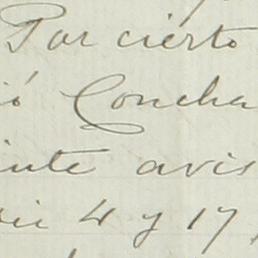 Por cierto
ió Concha
inte avis
4 y 17,